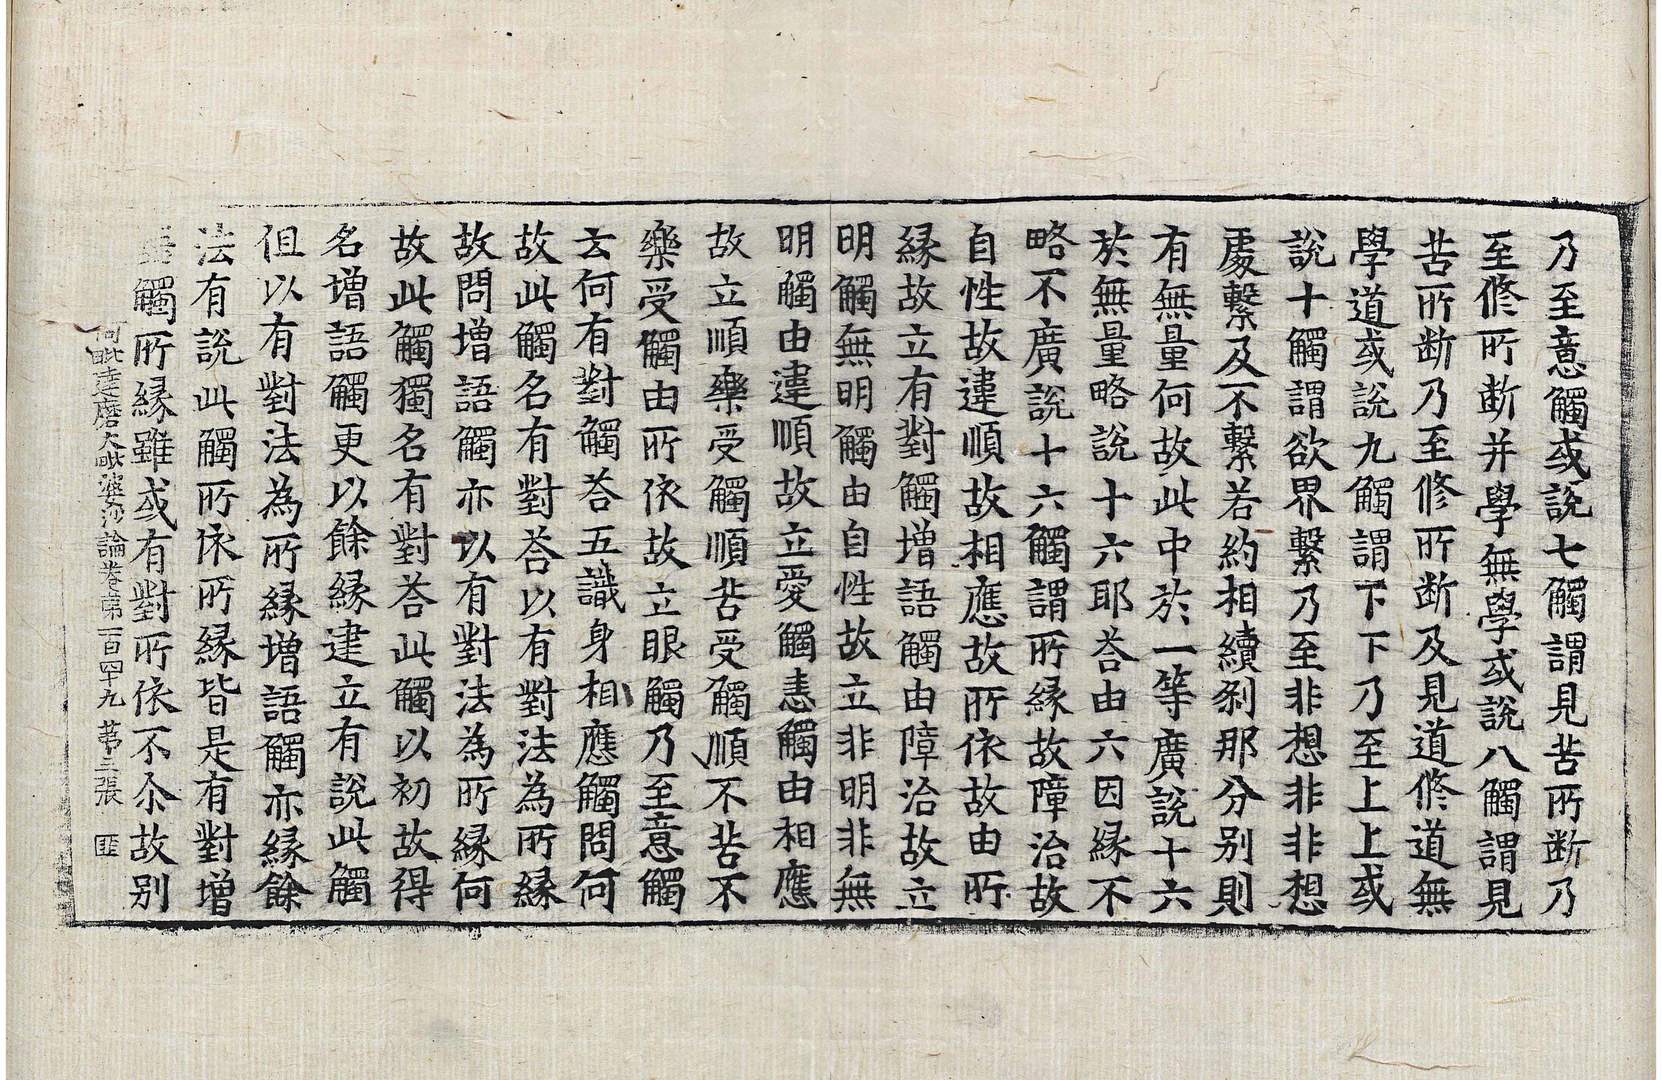 乃至意觸或說七觸謂見苦所斷乃
至修所斷并學無學或說八觸謂見
苦所斷乃至修所斷及見道修道無
學道或說九觸謂下下乃至上上或
說十觸謂欲界繫乃至非想非非想
處繫及不繫若約相續刹那分别則
有無量何故此中於一等廣說十六
於無量略說十六耶荅由六因緣不
略不廣說十六觸謂所緣故障治故
自性故違順故相應故所依故由所
緣故立有對觸增語觸由障治故立
明觸無明觸由自性故立非明非無
明觸由違順故立愛觸恚觸由相應
故立順樂受觸順苦受觸順不苦不
樂受觸由所依故立眼觸乃至意觸
云何有對觸荅五識身相應觸問何
故此觸名有對荅以有對法為所緣
故問增語觸亦以有對法為所緣何
故此觸獨名有對荅此觸以初故得
名增語觸更以餘緣建立有說此觸
但以有對法為所緣增語觸亦緣餘
法有說此觸所依所緣皆是有對增
語觸所緣雖或有對所依不尒故别
阿毗達磨大毗婆沙論卷第一百四十九 第三張 匪